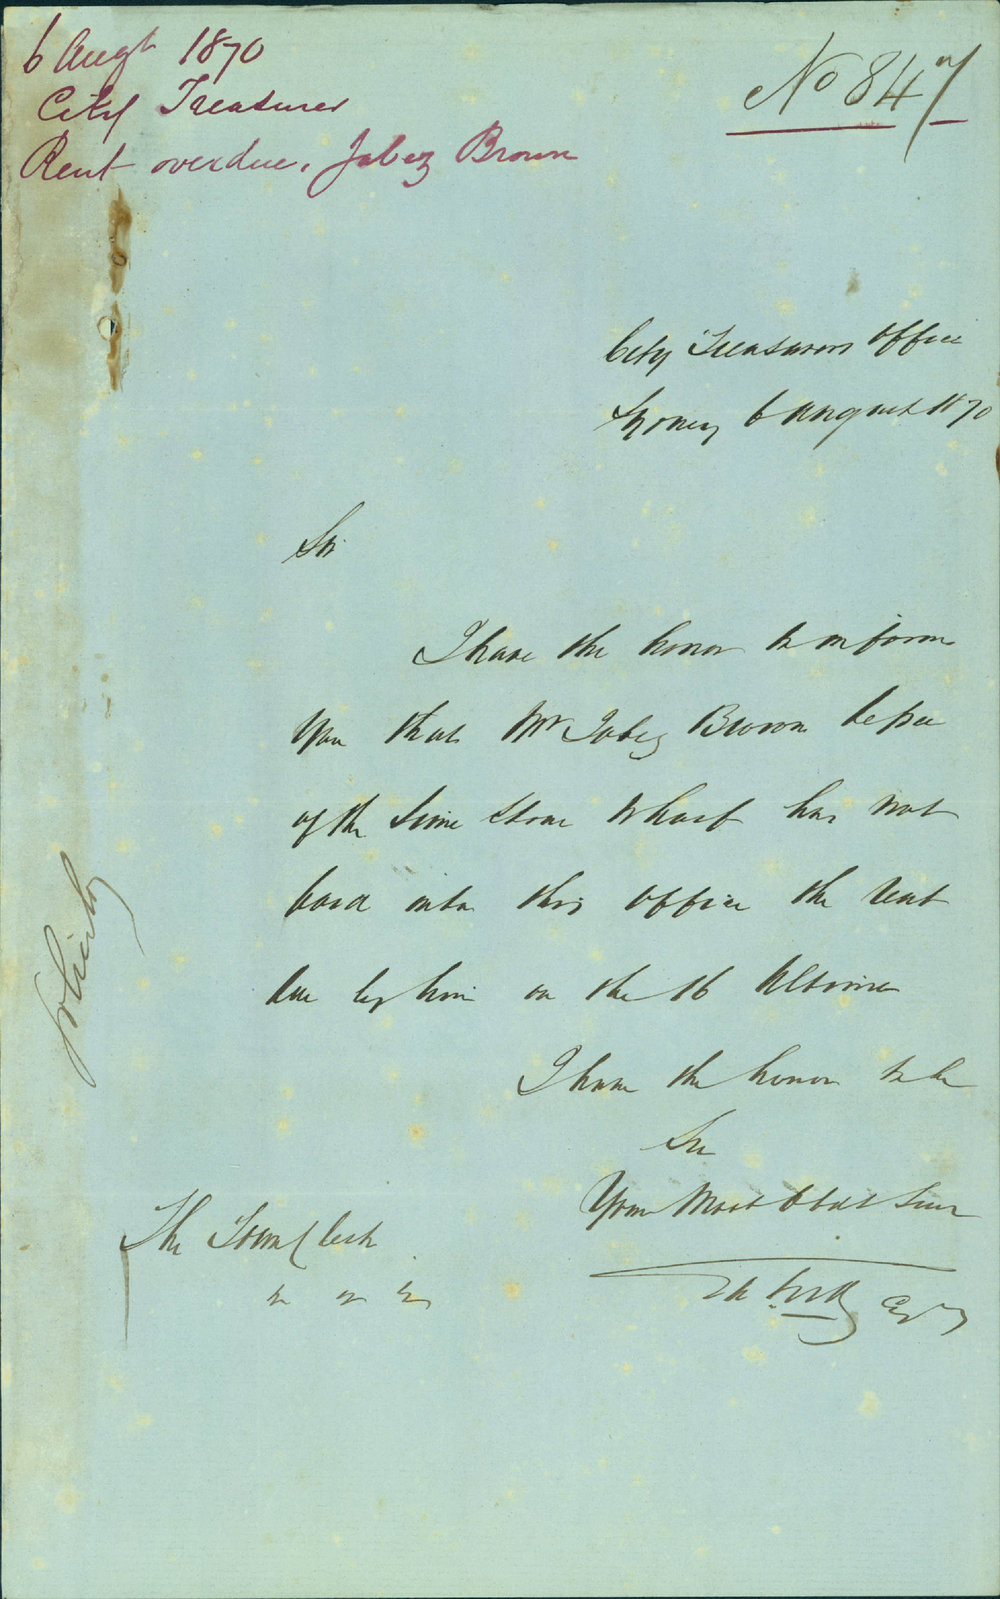 6 Augt 1870
City Treasurer
Rent overdue, Jabez Brown
No 847
City Treasurers Office
Sydney 6 August 1870
Sir
I have the honor to inform
you that Mr Jabez Brown lessee
of the Lime Stone Wharf has not
paid into this office the rent
due by him on the 16 Ultimo
I have the honor to be
Sir
Your Most Obdt Serv
The Town Clerk